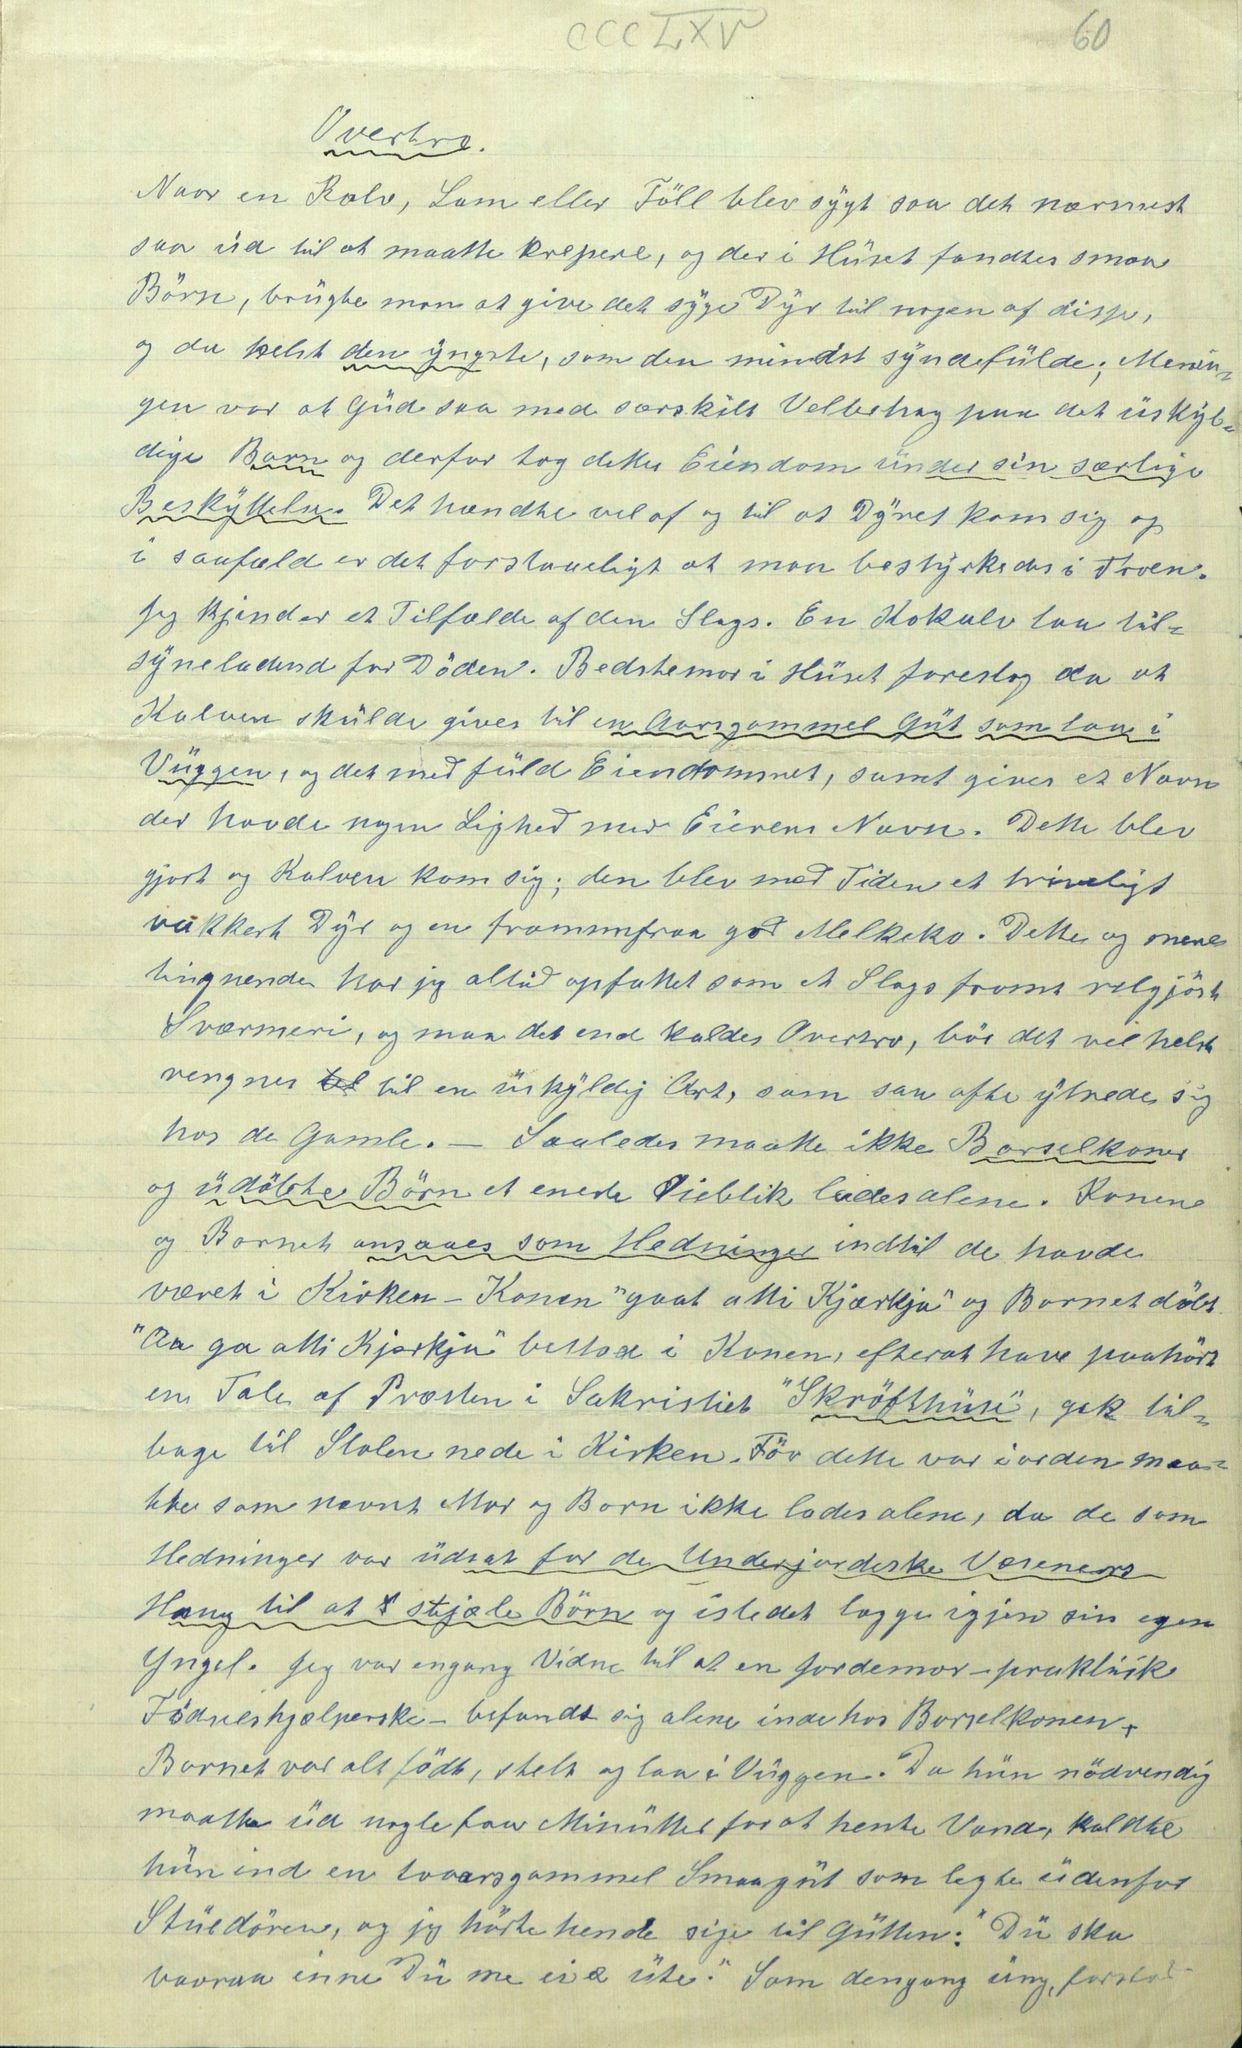 CCCLXV 60
Overtro.
Naar en Kalv, Lam eller Föll blev sygt saa det nærmest
saa ud til at maatte krepere, og der i Huset fandtes smaa
Börn, brugte man at give det syge Dyr til nogen af disse,
og da helst den yngste, som den mindst syndefulde; Menin-
gen var at Gud saa med særskilt Velbehag paa det uskyl-
dige Barn og derfor tog dettes Eiendom under sin særlige
Beskyttelse. Det hændte vel af og til at Dyret kom sig og
i saafald er det forstaaeligt at man bestyrkedes i Troen.
Jeg kjender et Tilfælde af den Slags. En Kokalv laa til-
syneladend for Döden. Bedstemor i Huset foreslog da at
Kalven skulde gives til en Aarsgammel Gut som laa i
Vuggen, og det med fuld Eiendomsret, samt gives et Navn
der havde nogen Lighed med Eierens Navn. Dette blev
gjort og Kalven kom sig; den blev med Tiden et triveligt
vakkert Dyr og en frammifraa god Melkeko. Dette og mere
lignende har jeg altid opfattet som et Slags fromt velgjört
Sværmeri, og maa det end kaldes Overtro, bör det vel helst
regnes til til en uskyldig Art, som saa ofte ytrede sig
hos de Gamle. — Saaledes maatte ikke Barselkoner
og udöbte Börn et eneste Öieblik lades alene. Konen
og Barnet ansaaes som Hedninger indtil de havde
været i Kirken – Konen "gaat atti Kjærkja" og Barnet döbt
"Aa ga atti Kjærkja" bestod i Konen, efterat have paahört
en Tale af Præsten i Sakristiet "Skröfthuse", gik til-
bage til Stolen nede i Kirken. För dette var iorden maa-
tte som nævnt Mor og Barn ikke lades alene, da de som
Hedninger var udsat for de Underjordiske Væseners
Hang til at stjæle Börn og istedet lægge igjen sin egen
Yngel. Jeg var engang Vidne til at en Jordemor – praktisk
Födselshjælperske – befandt sig alene inde hos Barselkonen,
Barnet var alt födt, stelt og laa i Vuggen. Da hun nödvendig
maatte ud nogle faa Minutter for at hente Vand, kaldte
hun ind en toaarsgammel Smaagut som legte udenfor
Stuedören, og jeg hörte hende sige til Gutten: "Du ska
vaaraa inne Du me ei e ute." Som dengang ung, forstod